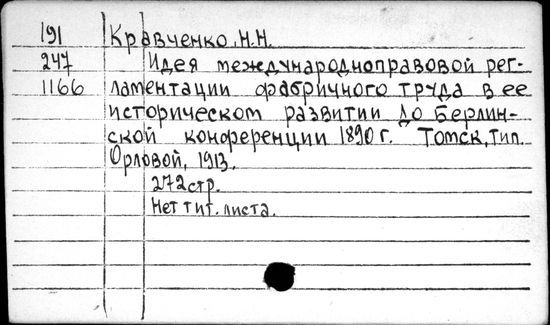 191 Кравченко, Н.Н.
247 Идея международноправовой рег-
1166 ламентации фабричного труда в ее
историческом развитии до Берлин-
ской конференции 1890 г. Томск, тип.
Орловой, 1913.
272 стр.
Нет тит. листа.